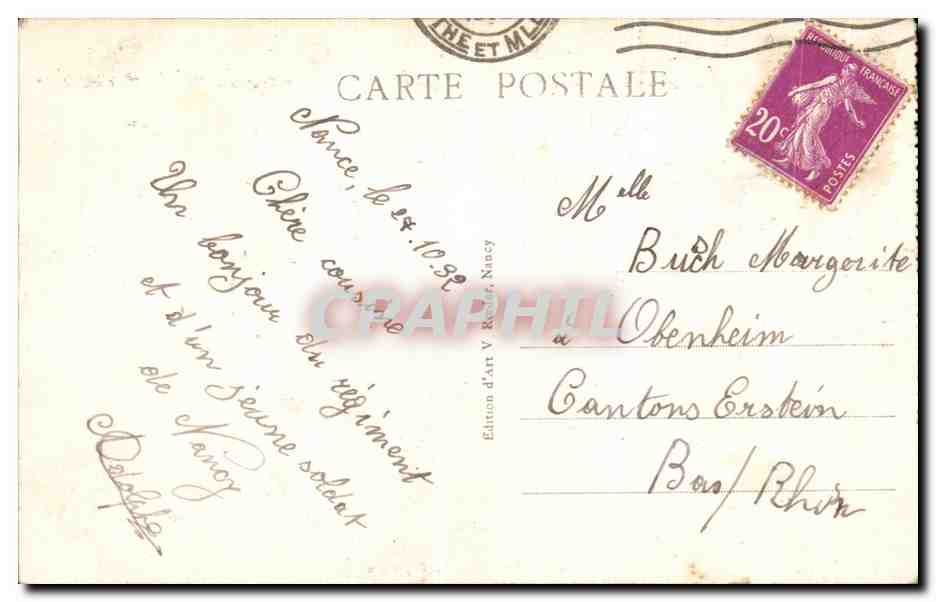 THE ET MLLE
CARTE POSTALE
REPUBLIQUE FRANÇAISE
20c
POSTES
Nance, le 27.10.32
Chère cousine
Un bonjour du régiment
et d'un jeune soldat
de Nancy
Adolphe
Edition d'Art V. Rieder, Nancy
Melle
Buch Margorite
à Obenheim
Cantons Erstein
Bas/Rhin
CPAPHIL